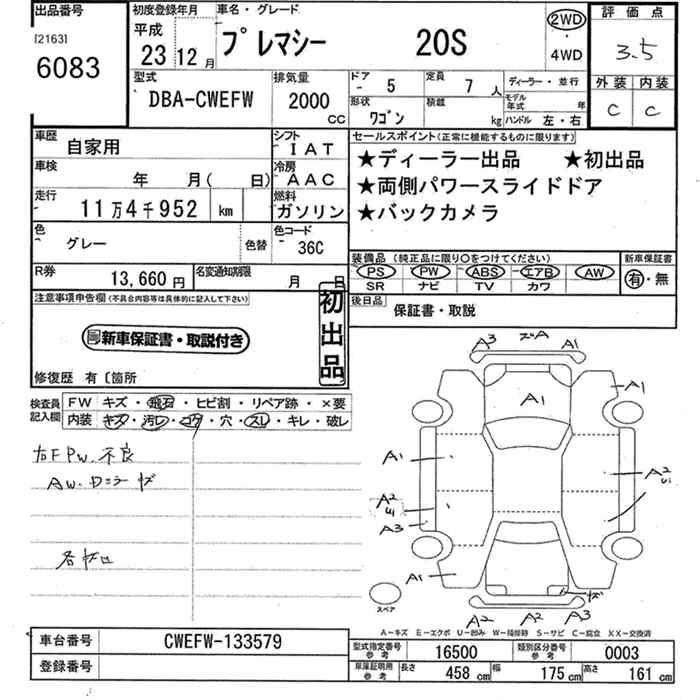 出品番号 初度登録年月 車名・グレード 評価点
[2163] 平成 プレマシー 20S 2WD
6083 23 12月 ・ 3.5
4WD
型式 排気量 ドア 5 定員 7人 ディーラー・並行 外装 内装
DBA-CWEFW 2000 CC 形状 ワゴン 積載 kg モデル年式 年 C C
ハンドル 左・右
車歴 自家用 シフト IAT セールスポイント(正常に機能するものに限ります)
車検 年 月( 日) 冷房 AAC ★ディーラー出品 ★初出品
走行 11万4千952 km 燃料 ガソリン ★両側パワースライドドア
★バックカメラ
色 グレー 色替 色コード 36C
装備品(純正品に限り○をつけてください) 新車保証書
PS PW ABS エアB AW 有・無
SR ナビ TV カワ
R券 13,660円 名変通知期限 月 日
後日品 保証書・取説
注意事項申告欄(不具合内容等は具体的に記入して下さい) 初出品
新車保証書・取説付き
修復歴 有〔箇所
検査員記入欄 FW キズ・飛石・ヒビ割・リペア跡・×要
内装 キズ・汚レ・コゲ・穴・スレ・キレ・破レ
右F PW. 不良
AW. キズ
A3 A1
A1
A1
A1
A2
A2
A3
A1
スペア
A2 A2 A3
A-キズ E-エクボ U-凹み W-補修跡 S-サビ C-腐食 XX-交換済
車台番号 CWEFW-133579
型式指定番号 参考 16500 類別区分番号 参考 0003
登録番号
車庫証明用 参考 長さ 458 cm 幅 175 cm 高さ 161 cm